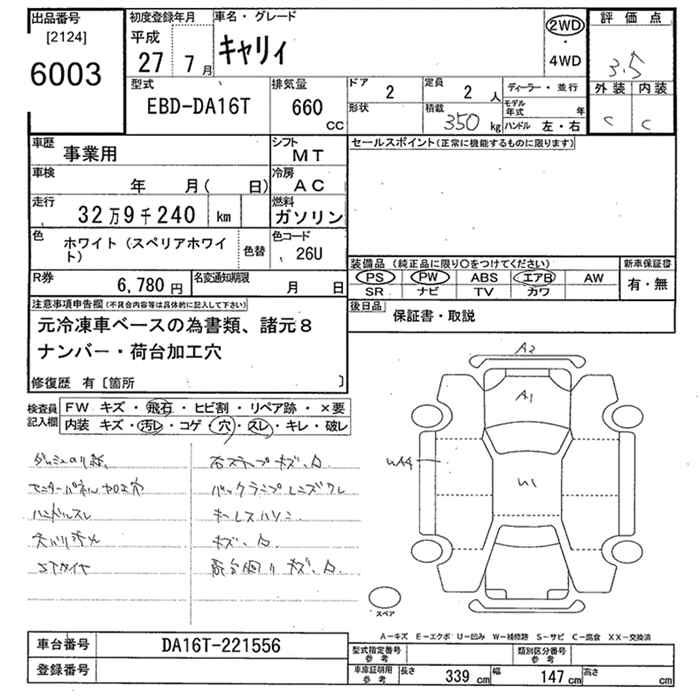 出品番号
[2124]
6003
初度登録年月
平成
27 7月
車名・グレード
キャリィ
2WD
・
4WD
評価点
3.5
外装 内装
C C
型式
EBD-DA16T
排気量
660
CC
ドア
2
定員
2 人
形状
積載
350 kg
ディーラー・並行
モデル年式 年
ハンドル 左・右
車歴 事業用
シフト
MT
車検
年 月( 日)
冷房
AC
走行
32万9千240 km
燃料
ガソリン
色
ホワイト(スペリアホワイト)
色替
色コード
26U
R券
6,780円
名変通知期限
月 日
セールスポイント(正常に機能するものに限ります)
装備品(純正品に限り○をつけてください)
PS PW ABS エアB AW
SR ナビ TV カワ
新車保証書
有・無
後日品
保証書・取説
注意事項申告欄(不具合内容等は具体的に記入して下さい)
元冷凍車ベースの為書類、諸元8
ナンバー・荷台加工穴
修復歴 有[箇所 ]
検査員記入欄
FW キズ・飛石・ヒビ割・リペア跡・×要
内装 キズ・汚レ・コゲ・穴・スレ・キレ・破レ
モニターパネル加工穴
ハンドルスレ
天バリ汚れ
STタイヤ
右ステップキズ、凸
バックランプレンズワレ
キーレスハソン
キズ、凸
荷台回りキズ、凸
A2
A1
U1
スペア
A-キズ E-エクボ U-凹み W-補修跡 S-サビ C-腐食 XX-交換済
車台番号
DA16T-221556
登録番号
型式指定番号
参考
類別区分番号
参考
車庫証明用
参考
長さ 339 cm 幅 147 cm 高さ cm